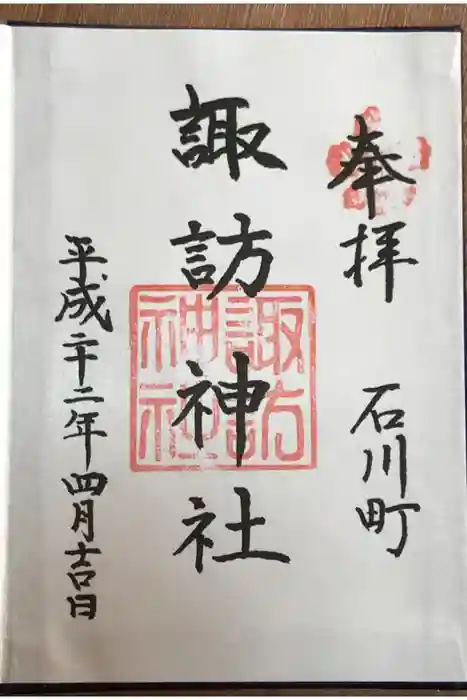 奉拝
石川町
諏訪神社
諏訪
神社
平成二十二年四月吉日